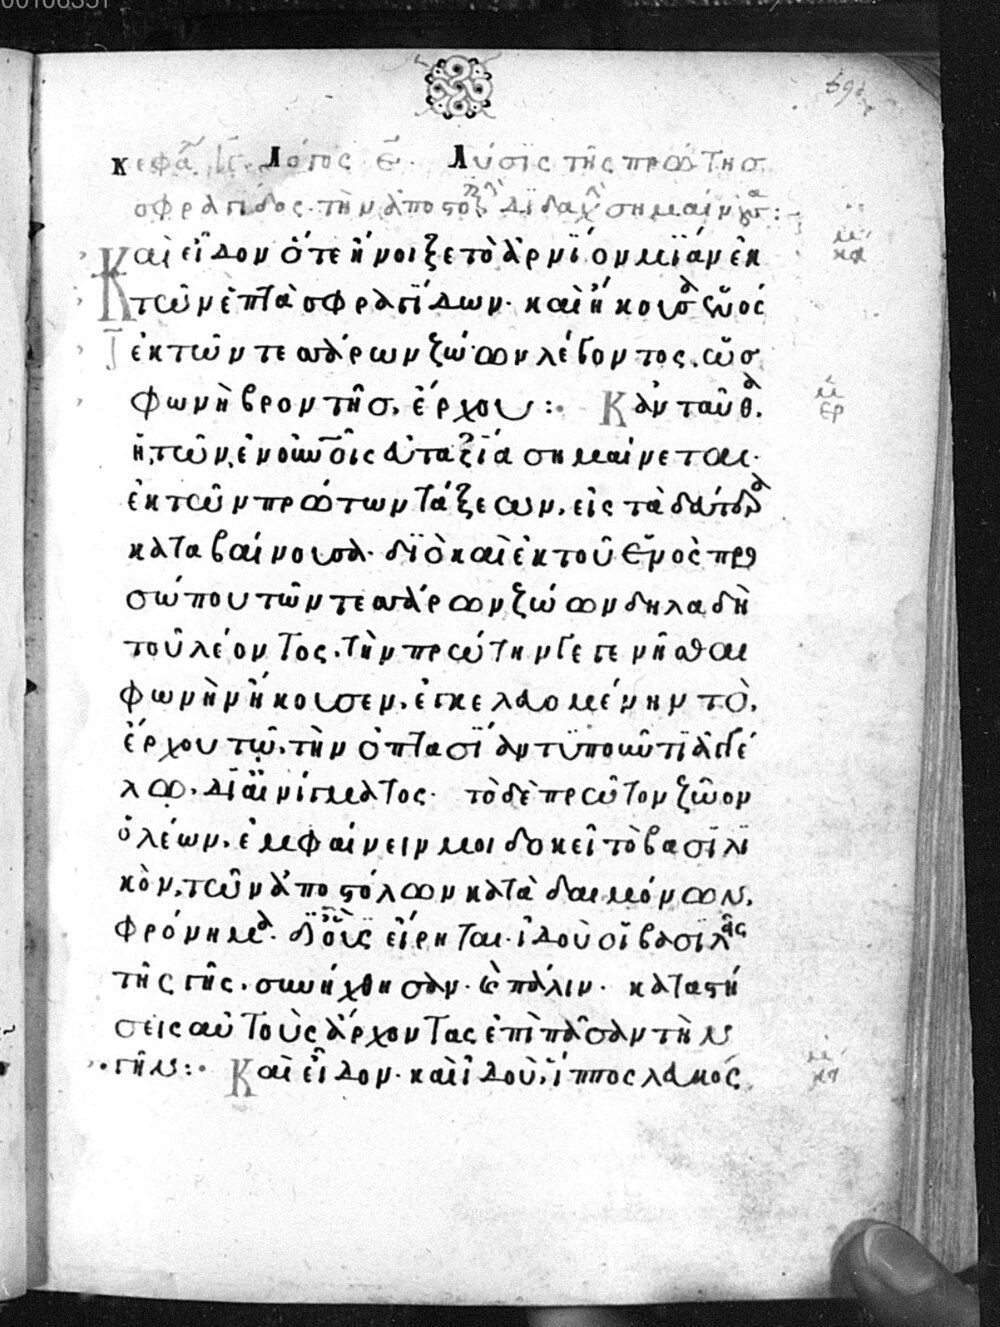 κεφα ιγ. Λόγος ε. Λύσις τῆς πρώτης
σφραγίδος. τὴν ἀποστολι διδαχ σημαίνουσα:
Καὶ εἶδον ὅτε ἤνοιξε τὸ ἀρνίον μίαν ἐκ
τῶν ἑπτὰ σφραγίδων. καὶ ἤκουσα ἑνὸς
ἐκ τῶν τεσσάρων ζώων λέγοντος. ὡς
φωνὴ βροντῆσ, ἔρχου:· Κἀνταῦθα.
ἡ τῶν ἐν οὐνοῖς εὐταξία σημαίνεται.
ἐκ τῶν πρώτων τάξεων, εἰς τὰ δεύτερα
καταβαίνουσα. διὸ καὶ ἐκ τοῦ ἑνὸς προ
σώπου τῶν τεσσάρων ζώων δηλαδὴ
τοῦ λέοντος. τὴν πρώτην γεγενῆσθαι
φωνὴν ἤκουσεν. ἐγκελευομένην τὸ,
ἔρχου τῷ, τὴν ὀπτασίαν τυποῦντι ἀγγέ
λω. δι αἰνίγματος. τὸ δὲ πρῶτον ζῶον
ὁ λέων. ἐμφαίνειν μοι δοκεῖ τὸ βασιλι
κὸν, τῶν ἀποστόλων κατὰ δαιμόνων,
φρόνημα. δι οὓς εἴρηται. ἰδοὺ οἱ βασιλεῖς
τῆς γῆς. συνήχθησαν. καὶ πάλιν. καταστή
σεις αὐτοὺς ἄρχοντας ἐπὶ πᾶσαν τὴν
γῆν:· Καὶ εἶδον. καὶ ἰδοὺ, ἵππος λευκός